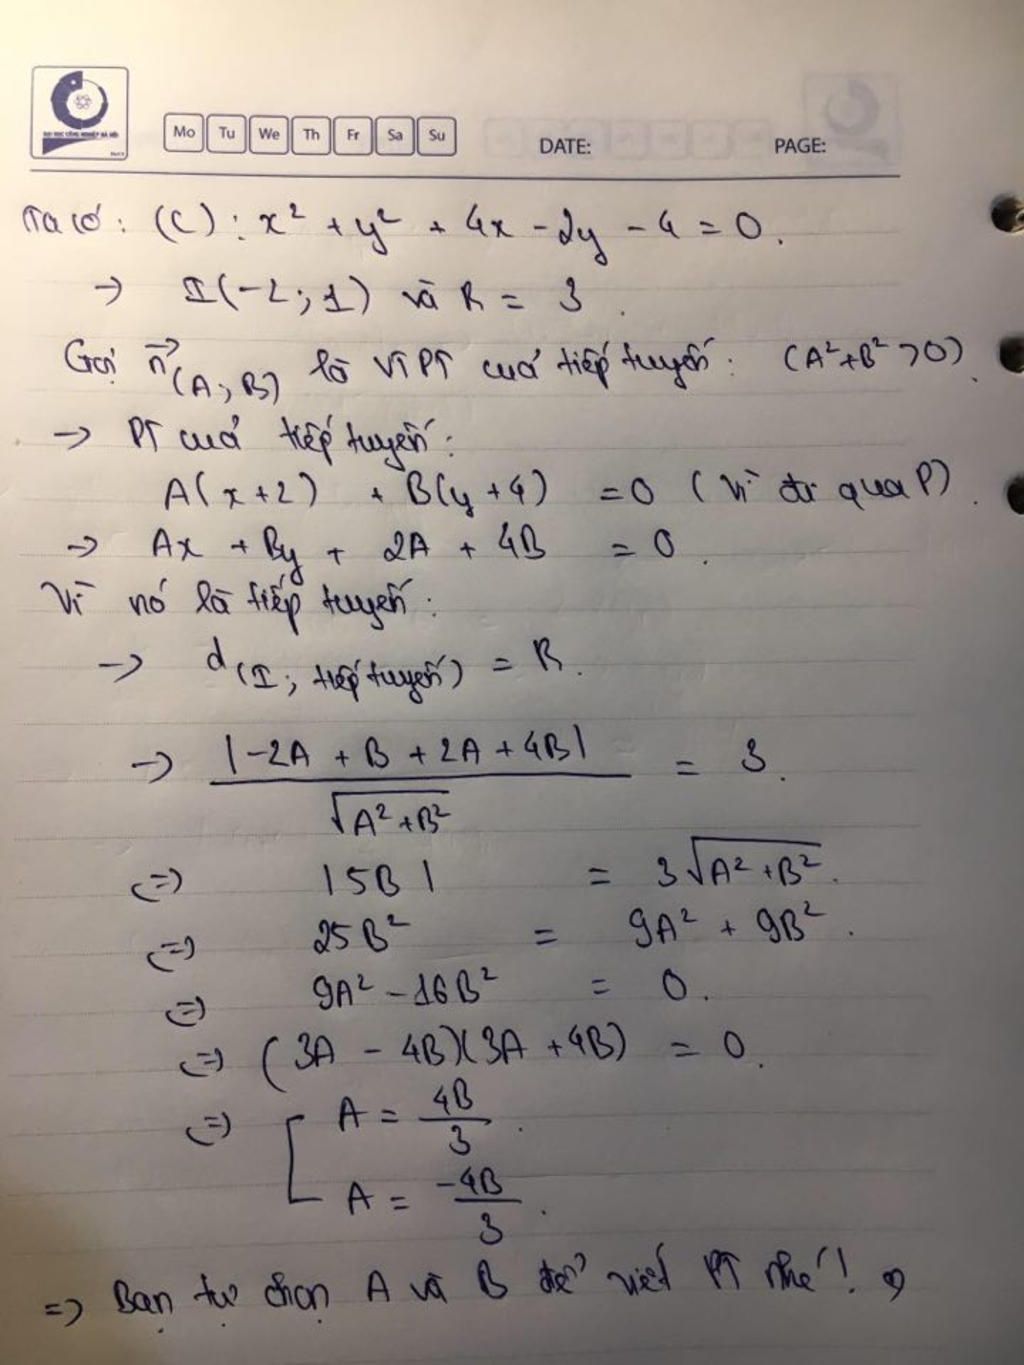 ĐẠI HỌC CÔNG NGHIỆP HÀ NỘI
Mo Tu We Th Fr Sa Su
DATE: PAGE:
Ta có: (C): x² + y² + 4x - 2y - 4 = 0.
→ I(-2; 1) và R = 3.
Gọi n⃗(A; B) là VTPT của tiếp tuyến: (A²+B²>0).
→ PT của tiếp tuyến:
A(x+2) + B(y+4) = 0 (Vì đi qua P).
→ Ax + By + 2A + 4B = 0.
Vì nó là tiếp tuyến:
→ d(I; tiếp tuyến) = R.
→ |-2A + B + 2A + 4B| / √(A²+B²) = 3.
⇔ |5B| = 3√(A²+B²).
⇔ 25B² = 9A² + 9B².
⇔ 9A² - 16B² = 0.
⇔ (3A - 4B)(3A + 4B) = 0.
⇔ [ A = 4B/3.
A = -4B/3.
=> Bạn tự chọn A và B để viết PT nhé!